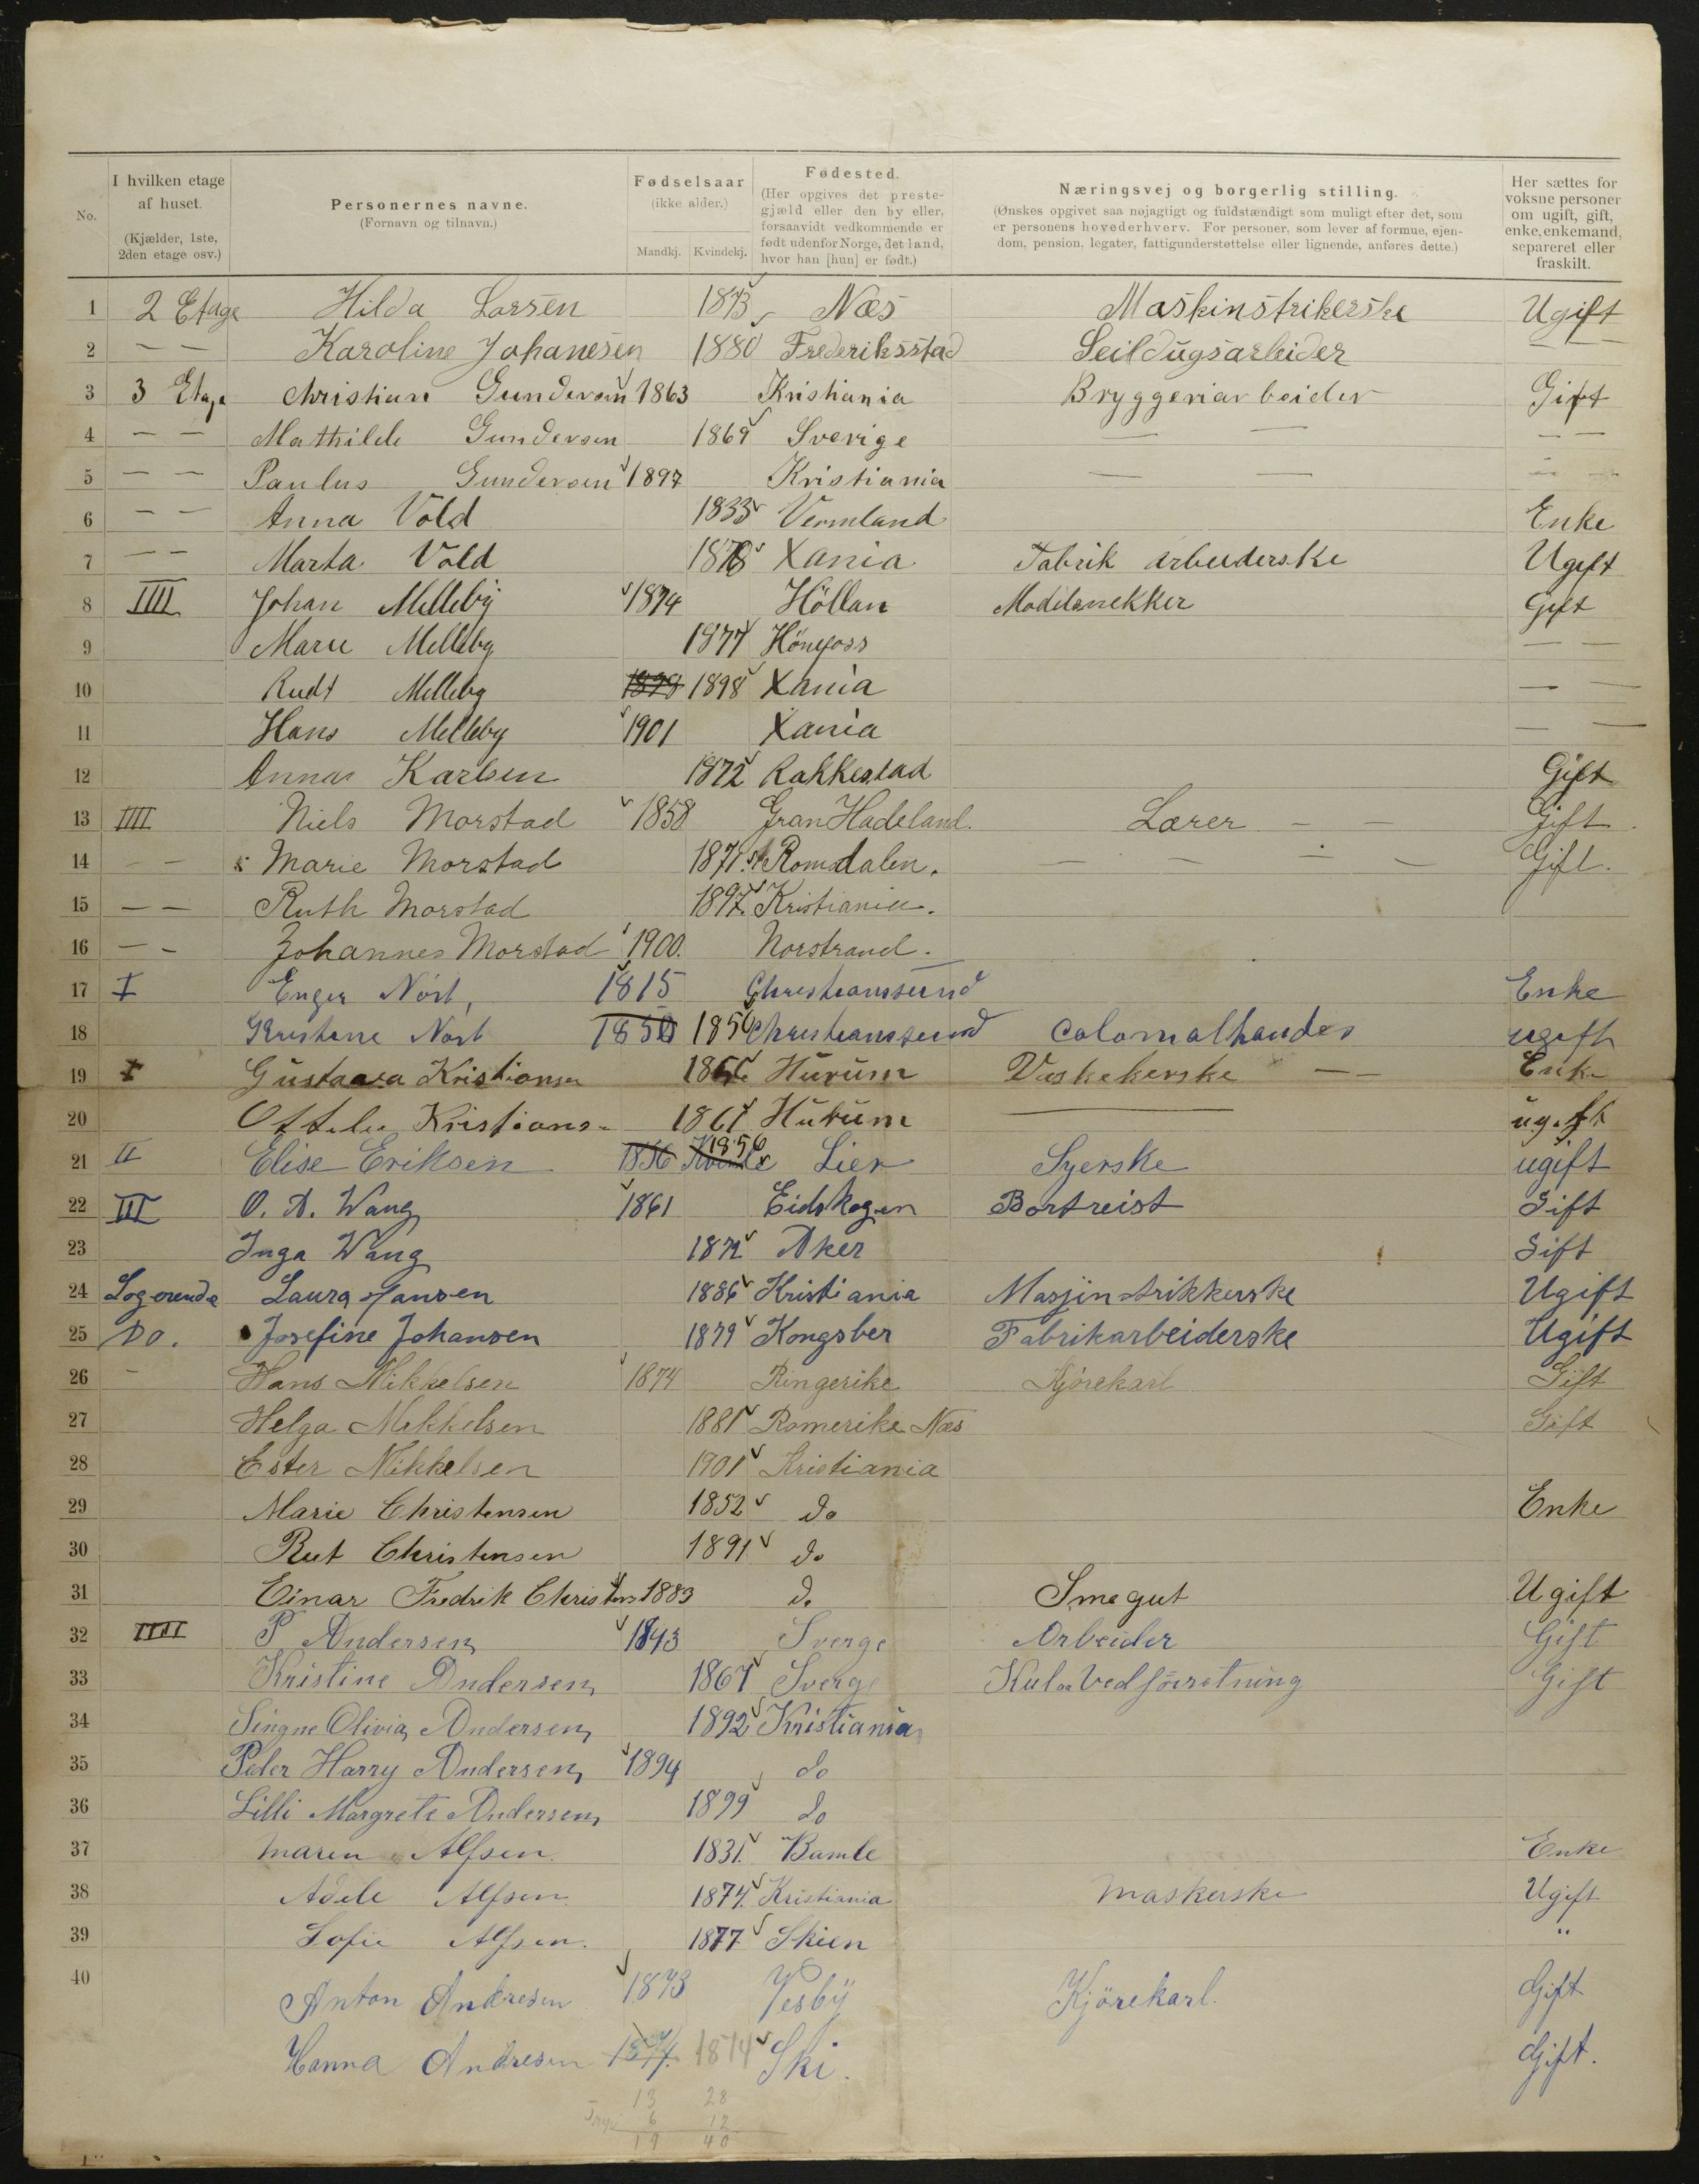 No.
I hvilken etage af huset. (Kjælder, 1ste, 2den etage osv.)
Personernes navne. (Fornavn og tilnavn.)
Fødselsaar (ikke alder.) Mandkj. Kvindekj.
Fødested. (Her opgives det prestegjæld eller den by eller, forsaavidt vedkommende er født udenfor Norge, det land, hvor han [hun] er født.)
Næringsvej og borgerlig stilling. (Ønskes opgivet saa nøjagtigt og fuldstændigt som muligt efter det, som er personens hovederhverv. For personer, som lever af formue, ejendom, pension, legater, fattigunderstøttelse eller lignende, anføres dette.)
Her sættes for voksne personer om ugift, gift, enke, enkemand, separeret eller fraskilt.
1 2 Etage Hilda Larsen 1873 Næs Maskinstrikerske Ugift
2 — — Karoline Johanesen 1880 Frederiksstad Seildugsarbeider — —
3 3 Etage Christian Gundersen 1863 Kristiania Bryggeriarbeider Gift
4 — — Mathilde Gundersen 1869 Sverige — — — —
5 — — Paulus Gundersen 1897 Kristiania — — — —
6 — — Anna Vold 1833 Vermland Enke
7 — — Marta Vold 1878 Xania Fabrik arbeiderske Ugift
8 IIII Johan Melleby 1874 Höllan Modelsnekker Gift
9 Marie Melleby 1877 Hönefoss — —
10 Rudt Melleby 1898 1898 Xania — —
11 Hans Melleby 1901 Xania — —
12 Anna Karlsen 1872 Rakkestad Gift
13 IIII Niels Morstad 1858 Gran Hadeland. Lærer — — Gift.
14 — — Marie Morstad 1871. Romsdalen. — — — — Gift.
15 — — Ruth Morstad 1897. Kristiania.
16 — — Johannes Morstad 1900. Norstrand.
17 I Enger Nört, 1815 Christianssund Enke
18 Kristine Nört 1850 1850 Christianssund Colomalhandes ugift
19 I Gustava Kristiansen Hurum Vaskekerske — — Enke
20 Kristians 1861 Hurum — ugift
21 II Elise Eriksen 1856 Kvinde 1856 Lier Syerske ugift
22 III O. A. Wang 1861 Eidskogen Bortreist Gift
23 Inga Wang 1872 Aker Gift
24 Logerende Laura Hansen 1886 Kristiania Masjinstrikkerske Ugift
25 Do. Josefine Johansen 1879 Kongsber Fabrikarbeiderske Ugift
26 — Hans Mikkelsen 1874 Ringerike Kjörekarl Gift
27 Helga Mikkelsen 1881 Romerike Næs Gift
28 Ester Mikkelsen 1901 Kristiania
29 Marie Christensen 1852 do Enke
30 Rut Christensen 1891 do
31 Einar Fredrik Christens 1883 do Smegut Ugift
32 IIII P Andersen 1843 Sverge Arbeider Gift
33 Kristine Andersen 1867 Sverge Kul og Vedforretning Gift
34 Singne Olivia Andersen 1892 Kristiania
35 Peder Harry Andersen 1894 do
36 Lilli Margrete Andersen 1899 do
37 Maren Alfsen. 1831. Bamle Enke
38 Adele Alfsen. 1874. Kristiania Maskerske Ugift
39 Sofie Alfsen. 1877. Skien "
40 Anton Andresen 1873 Vesby Kjörekarl. Gift
Hanna Andresen 1874. 1874 Ski. Gift.
13 28
6 12
19 40